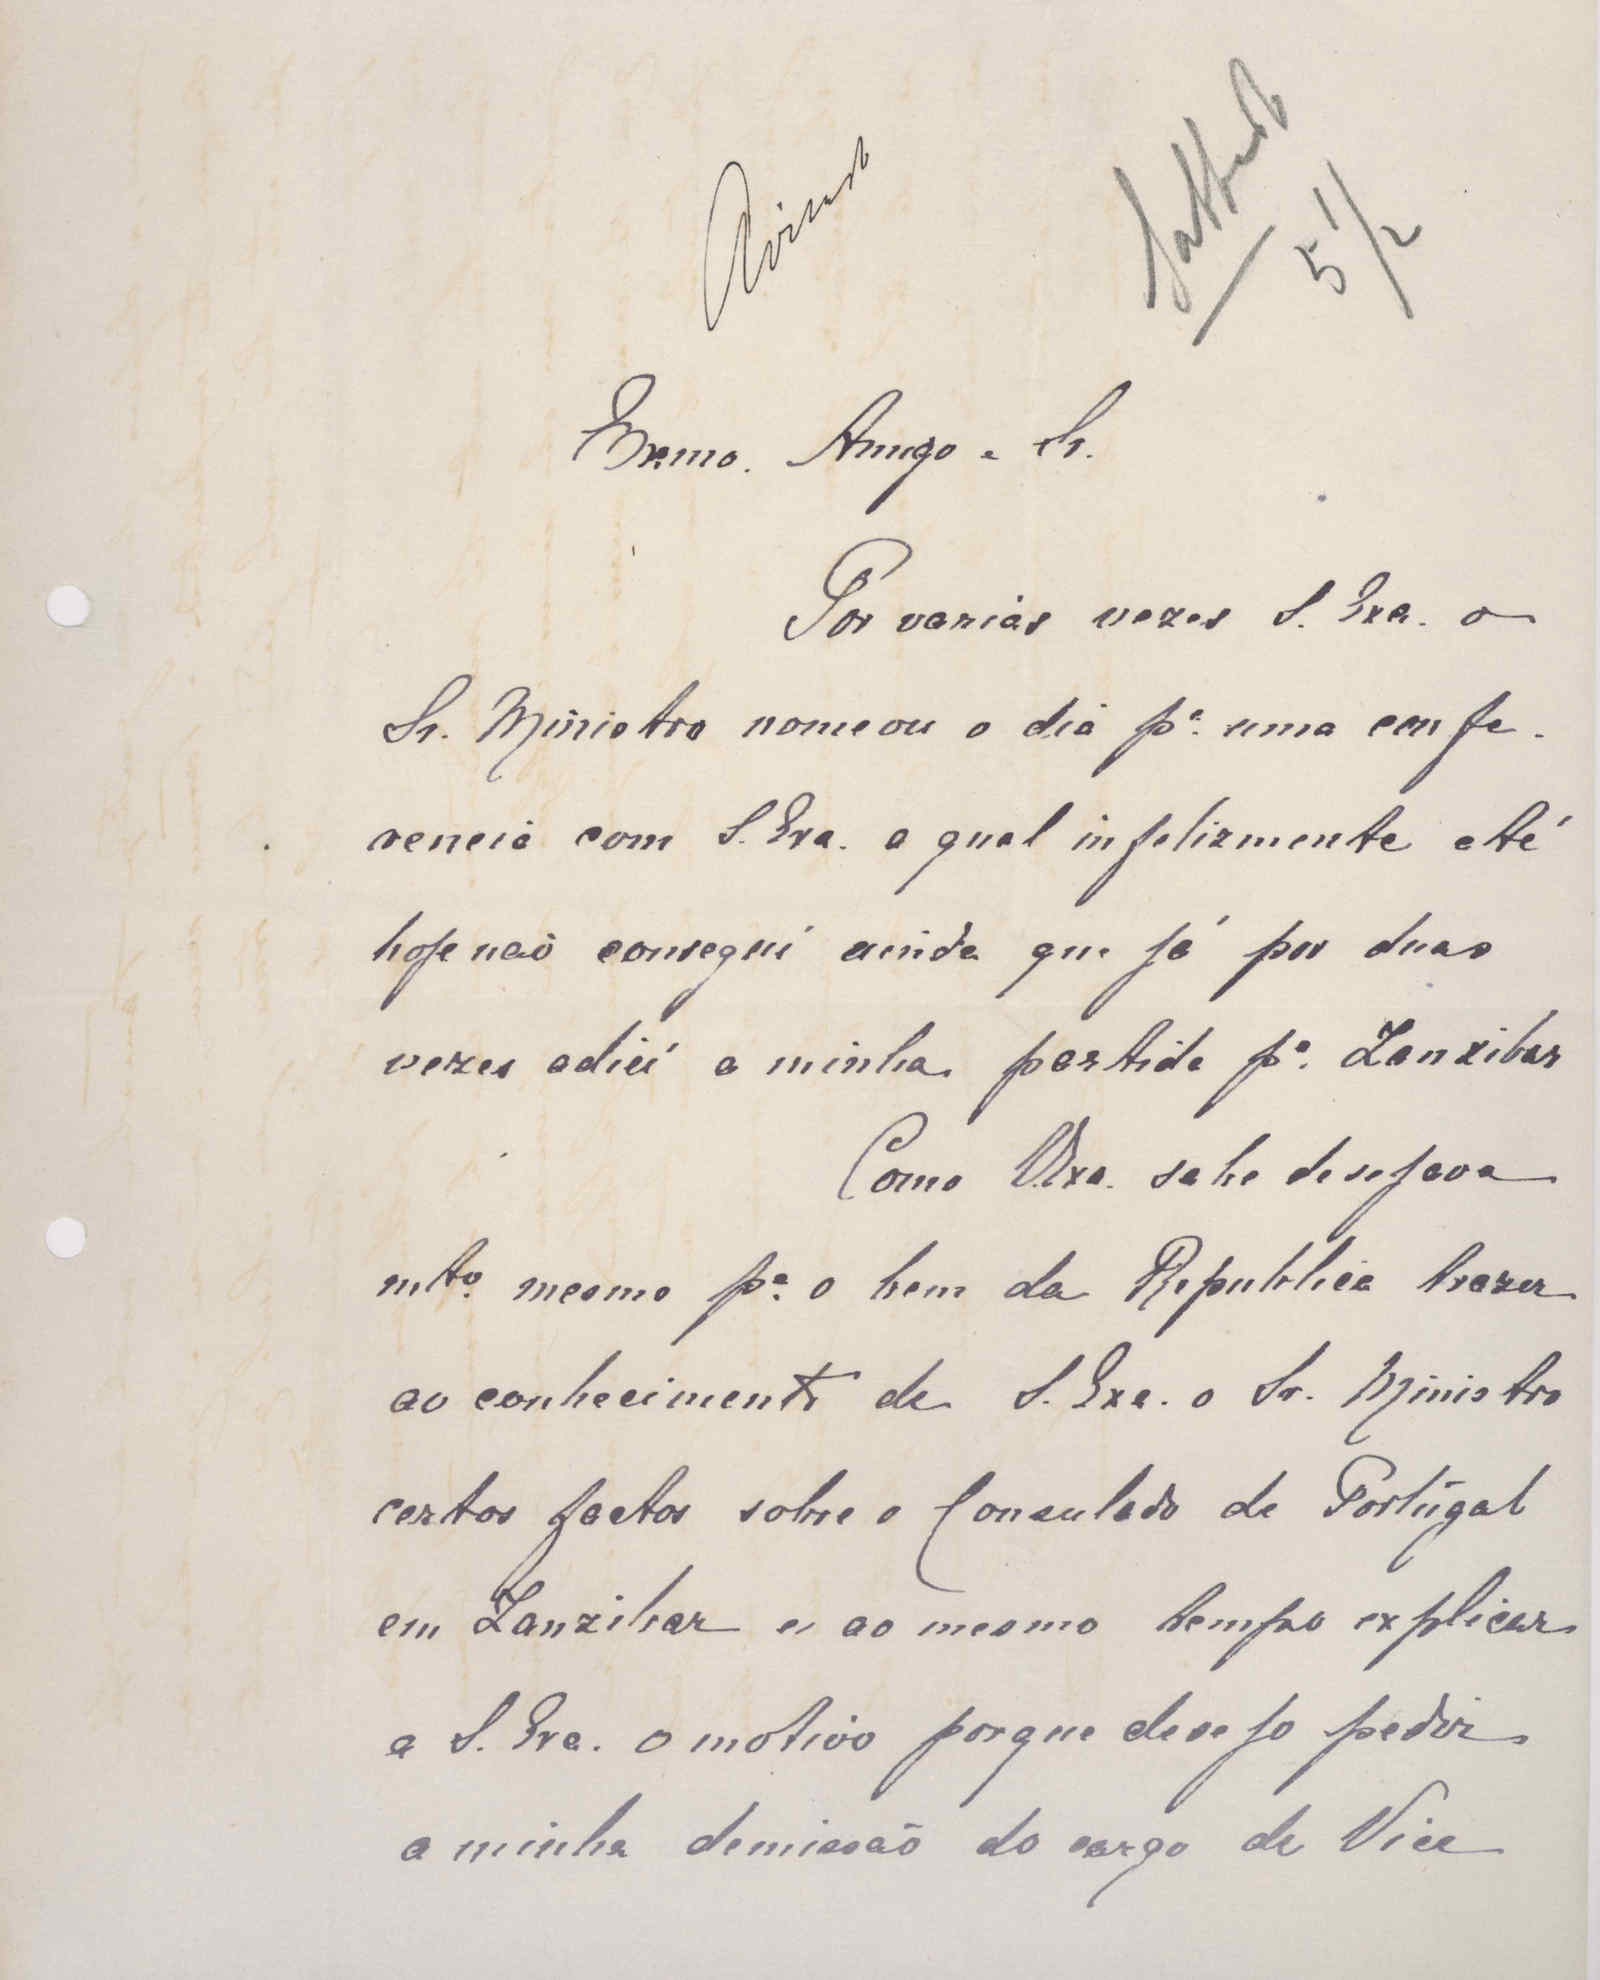 Avisado
Sabbado
5 1/2
Exmo. Amigo e Sr.
Por varias vezes S. Exa. o
Sr. Ministro nomeou o dia pª. uma confe-
rencia com S. Exa. a qual infelizmente até
hoje não consegui ainda que já por duas
vezes adiei a minha partida pª. Zanzibar
Como V. Exa. sabe desejava
mtº. mesmo pª. o bem da Republica trazer
ao conhecimento de S. Exa. o Sr. Ministro
certos factos sobre o Consulado de Portugal
em Zanzibar e ao mesmo tempo explicar
a S. Exa. o motivo porque desejo pedir
a minha demissão do cargo de Vice